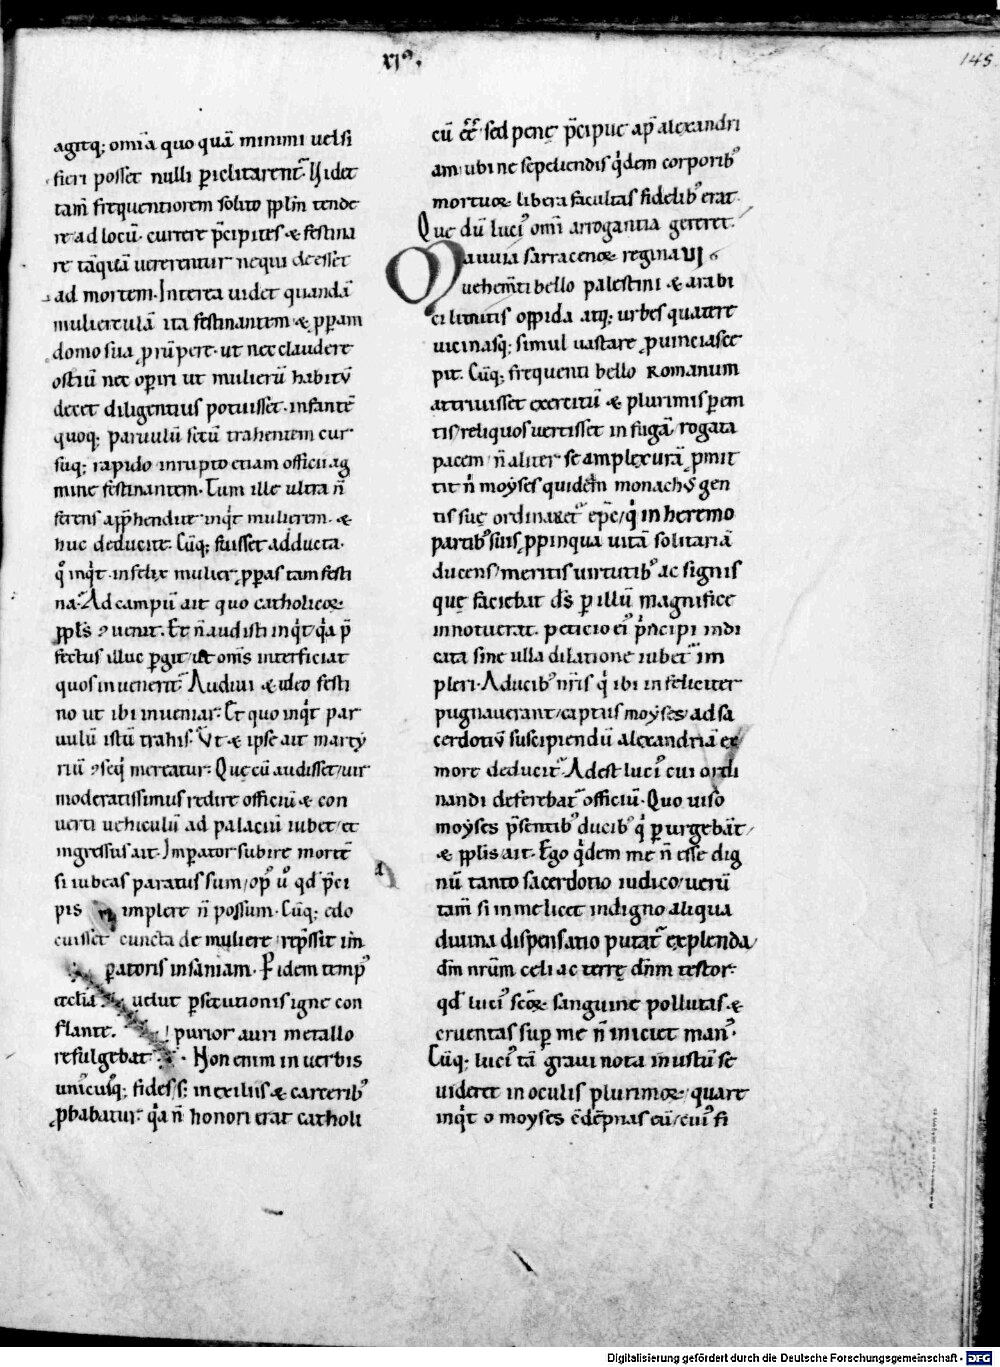 xiꝰ.
145
agitq; omīa quo quā minimi uel si
fieri posset nulli ꝑiclitarent᷑. Videt
tam̄ frequentiorem solito ppl̄m tende
re ad locū. currere p̄cipites ⁊ festina
re tāquā uererentur nequi deesset
ad mortem. Interea uidet quandā
mulierculā ita festinantem ⁊ ꝓperam
domo sua ꝓrūpere. ut nec claudere
ostiū nec operiri ut mulierū habitū
decet diligentius potuisset. infantē
quoq; paruulū secū trahentem cur
suq; rapido inrupto etiam officii ag
mine festinantem. Cum ille ultra n̄
ferens app̄hendite inq̇t mulierem. ⁊
huc deducite. Cūq; fuisset adducta.
q̊ inq̇t. infelix mulier ꝓperas tam festi
na. Ad campū ait quo catholicoꝝ
ppl̄s ꝯuenit. Et n̄ audisti inq̇t/ q̇a p̄
fectus illuc ꝑgit/ ut om̄s interficiat
quos inuenerit. Audiui ⁊ ideo festi
no ut ibi inueniar. Et quo inq̇t par
uulū istū trahis. Vt ⁊ ipse ait martẏ
riū ꝯseq̇ mereatur. Quę cū audisset/ uir
moderatissimus redire officiū ⁊ con
uerti uehiculū ad palaciū iubet/ et
ingressus ait. Imperator subire mortē
si iubeas paratus sum/ opꝰ u̇ qd̄ p̄ci
pis implere n̄ possum. Cūq; edo
cuisset cuncta de muliere/ rep̄ssit im
ꝑatoris insaniam. Ꝑ idem tempꝰ
ęcclia uelut ꝑsecutionis igne con
flante. purior auri metallo
refulgebat. Non enim in uerbis
uniꝰcuiusq; fides/ s; in exiliis ⁊ carceribꝰ
ꝓbabatur. q̇a n̄ honori erat catholi
cū eē/ sed penę p̄cipue ap̄ alexandri
am. ubi ne sepeliendis q̇dem corporibꝰ
mortuoꝝ libera facultas fidelibꝰ erat.
Quę dū luciꝰ omī arrogantia gereret.
Mauuia sarracenoꝝ regina VI
uehem̄ti bello palestini ⁊ arabi
ci limitis oppida atq; urbes quatere
uicinasq; simul uastare ꝓuincias cę
pit. Cūq; frequenti bello romanum
attriuisset exercitū ⁊ plurimis ꝑem
tis/ reliquos uertisset in fugā/ rogata
pacem/ n̄ aliter se amplexurā ꝓmit
tit n̄ moẏses quidem monachꝰ gen
tis suę ordinaret᷑ ep̄c/ q̇ in heremo
partibꝰ suis ꝓpinqua uitā solitariā
ducens/ meritis uirtutibꝰ ac signis
quę faciebat d̄s ꝑ illū magnifice
innotuerat. peticio eiꝰ p̄ncipi indi
cata sine ulla dilatione iubet᷑ im
pleri. A ducibꝰ nr̄is q̇ ibi infeliciter
pugnauerant/ captus moẏses/ ad sa
cerdotiū suscipiendū alexandriā ex
more deducit᷑. Adest luciꝰ cui ordi
nandi deferebat᷑ officiū. Quo uiso
moẏses p̄sentibꝰ ducibꝰ q̇ ꝑ urgebāt/
⁊ pplīs ait. Ego q̇dem me n̄ esse dig
nū tanto sacerdotio iudico/ uerū
tam̄ si in me licet indigno aliqua
diuina dispensatio putat᷑ explenda/
dm̄ nr̄um celi ac terrę dn̄m testor.
qd̄ luciꝰ sc̄oꝝ sanguine pollutas ⁊
cruentas suꝑ me n̄ iniciet manꝰ.
Cūq; luciꝰ tā graui nota inustū se
uideret in oculis plurimoꝝ/ quare
inq̇t o moyses condēpnas eū/ cuiꝰ fi
Digitalisierung gefördert durch die Deutsche Forschungsgemeinschaft - DFG